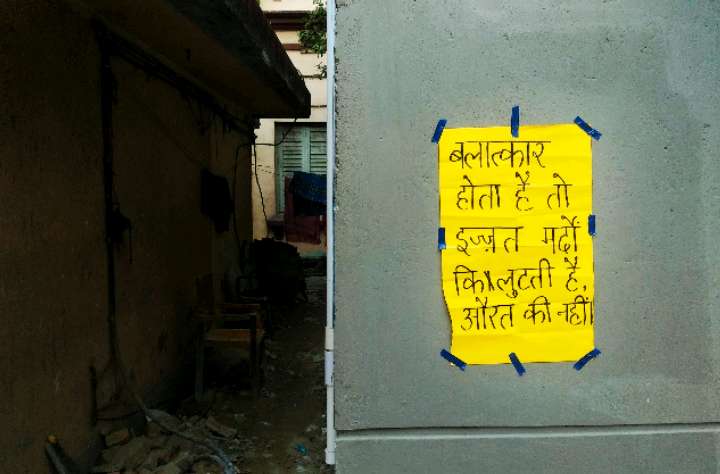 बलात्कार
होता है तो
इज्ज़त मर्दों
कि लुटती है,
औरत की नहीं।